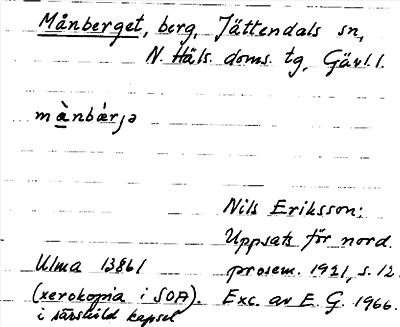 Månberget, berg, Jättendals sn,
N. Häls. doms. tg, Gävl. l.
mằnbárjə
Nils Eriksson:
Uppsats för nord.
Ulma 13861 prosem. 1921, s. 12.
(xerokopia i SOA). Exc. av E. G. 1966.
i särskild kapsel